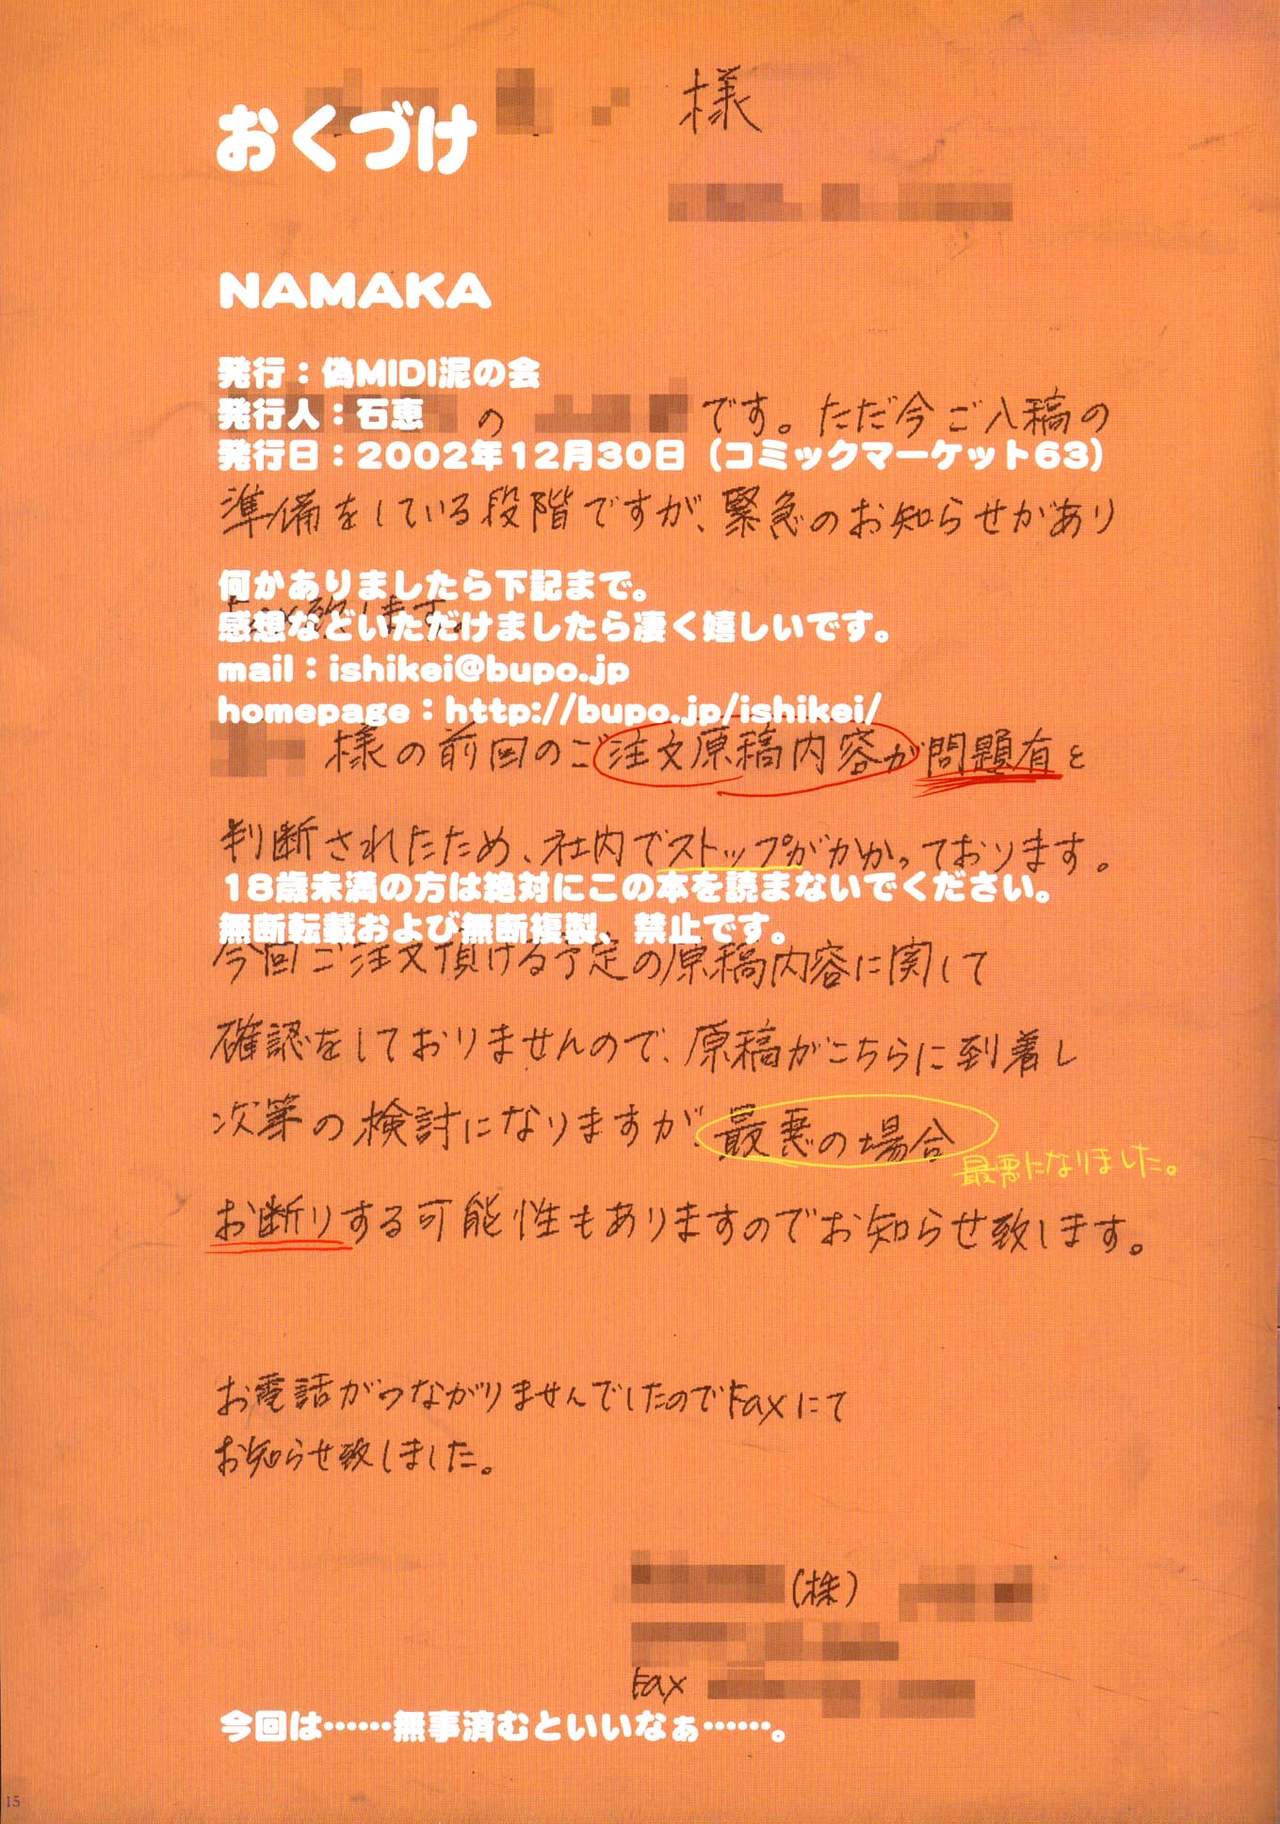 様
おくづけ
NAMAKA
発行：偽MIDI泥の会
発行人：石恵
の です。ただ今ご入稿の
発行日：2002年12月30日（コミックマーケット63）
準備をしている段階ですが、緊急のお知らせがあり
何かありましたら下記まで。
Fax致します。
感想などいただけましたら凄く嬉しいです。
mail：ishikei@bupo.jp
homepage：http://bupo.jp/ishikei/
様の前回のご注文原稿内容が問題有と
判断されたため、社内でストップがかかっております。
18歳未満の方は絶対にこの本を読まないでください。
無断転載および無断複製、禁止です。
今回ご注文頂ける予定の原稿内容に関して
確認をしておりませんので、原稿がこちらに到着し
次第の検討になりますが、最悪の場合
最悪になりました。
お断りする可能性もありますのでお知らせ致します。
お電話がつながりませんでしたのでFaxにて
お知らせ致しました。
（株）
Fax
今回は……無事済むといいなぁ……。
15